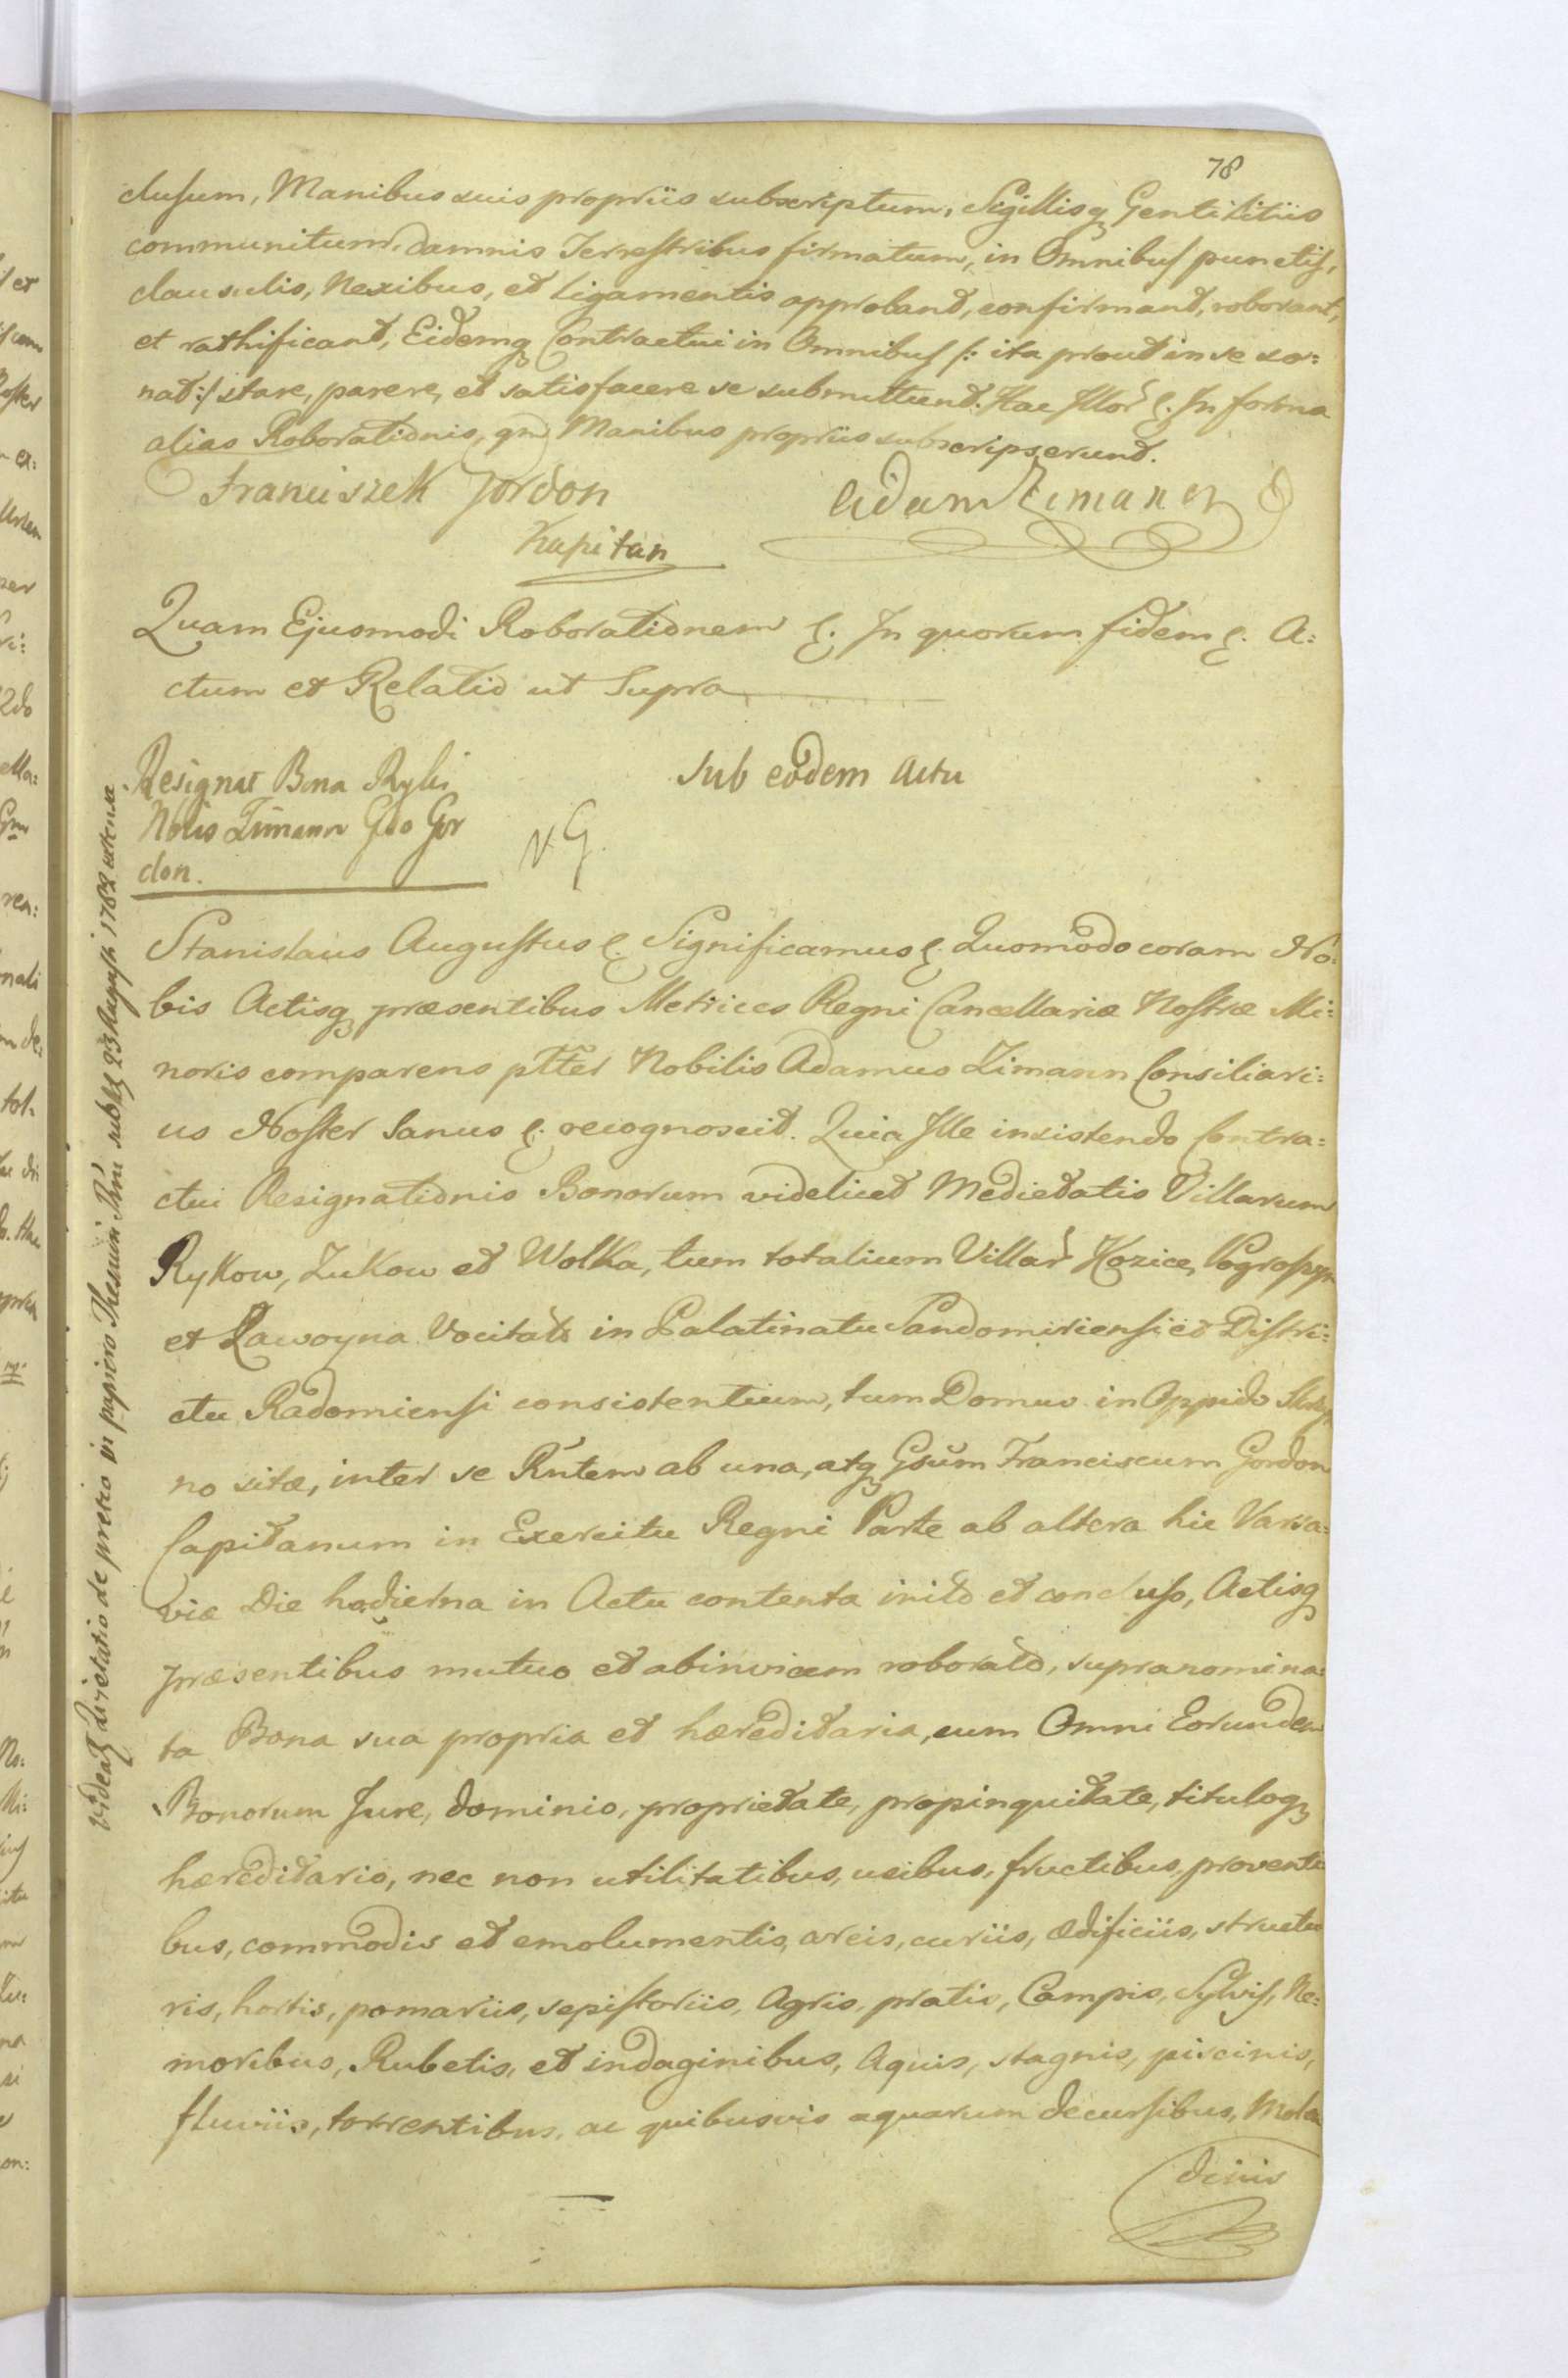 78
clusum, Manibus suis propriis subscriptum, Sigillisq Gentilitiis
communitum, damnis Terrestribus firmatum, in Omnibus punctis,
clausulis, Nexibus, et Ligamentis approbant, confirmant, roborant,
et rathificant, Eidemq Contractui in Omnibus /: ita prout in se so:
nat :/ stare, parere, et satisfacere se submittunt. Hac Illor &. In forma
alias Roborationis, qm Manibus propriis subscripserunt.
Franciszek Gordon
Kapitan
Adam Zimann
Quam Ejusmodi Roborationem &. In quorum fidem &. A:
ctum et Relatio ut Supra
Resignat Bona
Nobis Zimann Gso Gor
don.
Sub eodem Actu
Stanislaus Augustus &. Significamus &. Quomodo coram No:
bis Actisq præsentibus Metrices Regni Cancellariæ Nostræ Mi:
noris comparens ptter Nobilis Adamus Zimann Consiliari:
us Noster Sanus &. recognoscit. Quia Ille insistendo Contra:
ctui Resignationis Bonorum videlicet Medietatis Villarum
Rykow, Zukow et Wolka, tum totalium Villar Kozice,
et Zawoyna Vocitat in Palatinatu Sandomiriensi et Distri:
ctu Radomiensi consistentium, tum Domus in Oppido
no sitæ, inter se Rntem ab una, atq Gsum Franciscum Gordon
Capitanum in Exercitu Regni Parte ab altera hic Varsa:
viæ Die hodierna in Actu contenta inito et concluso, Actisq
præsentibus mutuo et abinvicem roborato, supranomina:
ta Bona sua propria et hæreditaria, cum Omni Eorundem
Bonorum Jure, dominio, proprietate, propinquitate, tituloq
hæreditario, nec non utilitatibus, usibus, fructibus, proventi
bus, commodis et emolumentis, areis, curiis, ædificiis, structu
ris, hortis, pomariis, sepistoriis, Agris, pratis, Campis, Sylvis, Ne:
moribus, Rubetis, et indaginibus, Aquis, stagnis, piscinis,
fluviis, torrentibus, ac quibusvis aquarum decursibus, Molen
dinis
Videatq Quietatio de pretio in papiero Thesauri Rni sub die 23 Augusti 1782